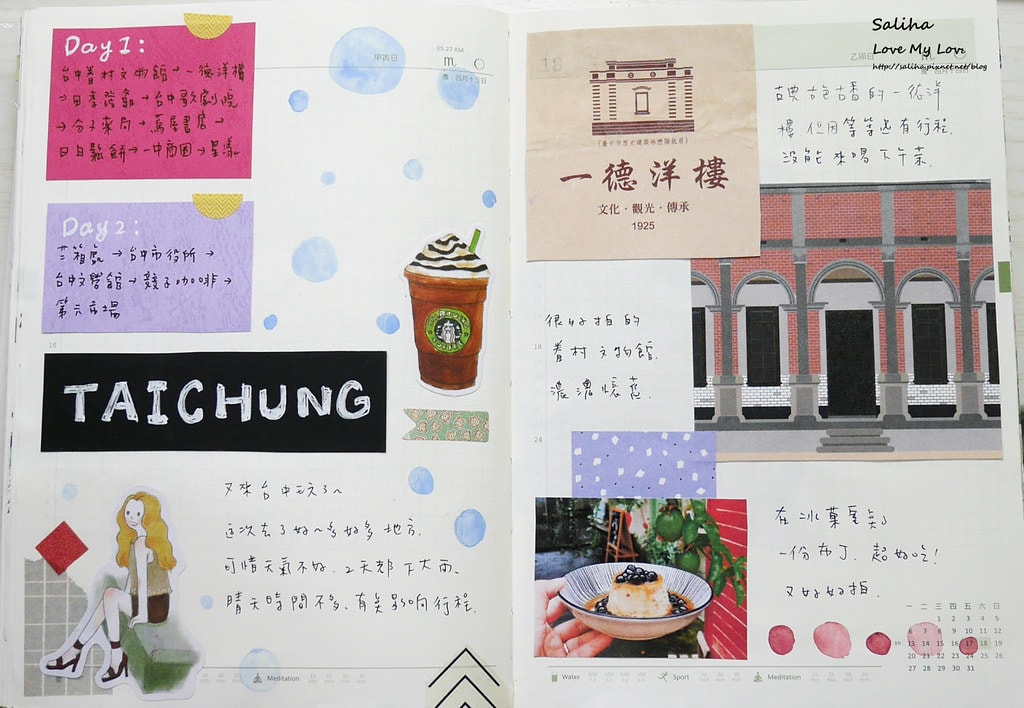 Day1:
台中眷村文物館→一德洋樓
→四季陪龍→台中歌劇院
→分子藥局→蔦屋書店→
日日鬆餅→一中商圈→星漾
Day2:
台中市役所→
台中文學館→親子咖啡→
第六市場
TAICHUNG
又來台中玩了~
這次去了好~多好多地方.
可惜天氣不好. 2天都下大雨.
晴天時間不多. 有臭影响行程.
甲寅日
05:27 AM
18
Meditation
Saliha
Love My Love
http://saliha.pixnet.net/blog
18
乙卯日
(臺中市歷史建築林懋陽故居)
一德洋樓
文化·觀光·傳承
1925
古典古色古香的一德洋
樓 但因等等還有行程.
沒能來喝下午茶.
很好拍的
眷村文物館.
濃濃懷舊.
18
24
在冰菓屋買了
一份布丁. 超好吃!
又好好拍.
一 二 三 四 五 六 日
1 2 3 4 5
6 7 8 9 10 11 12
13 14 15 16 17 18 19
20 21 22 23 24 25 26
27 28 29 30 31
Water
Sport
Meditation